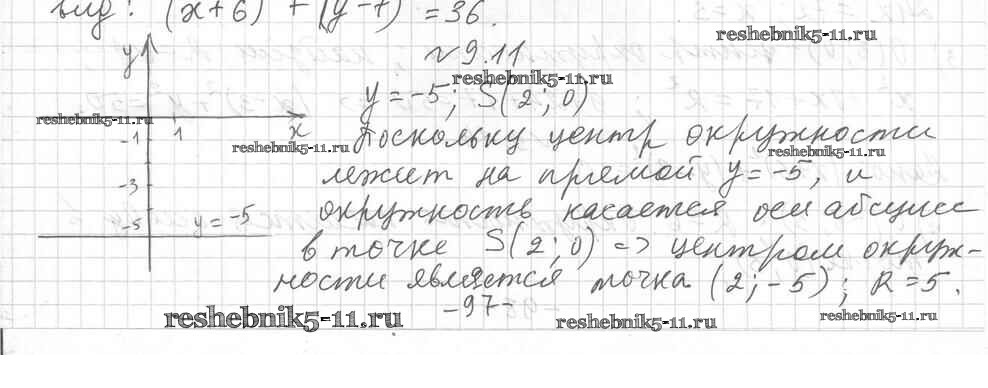 вид: (x+6) + (y-7) = 36.
reshebnik5-11.ru
N 9.11
reshebnik5-11.ru
y
y = -5; S(2; 0)
reshebnik5-11.ru
-1 1 x
Поскольку центр окружности
reshebnik5-11.ru
reshebnik5-11.ru
лежит на прямой y = -5, и
-3
окружность касается оси абсцисс
-5 y = -5
в точке S(2; 0) => центром окруж-
ности является точка (2; -5); R = 5.
-97-
reshebnik5-11.ru
reshebnik5-11.ru
reshebnik5-11.ru